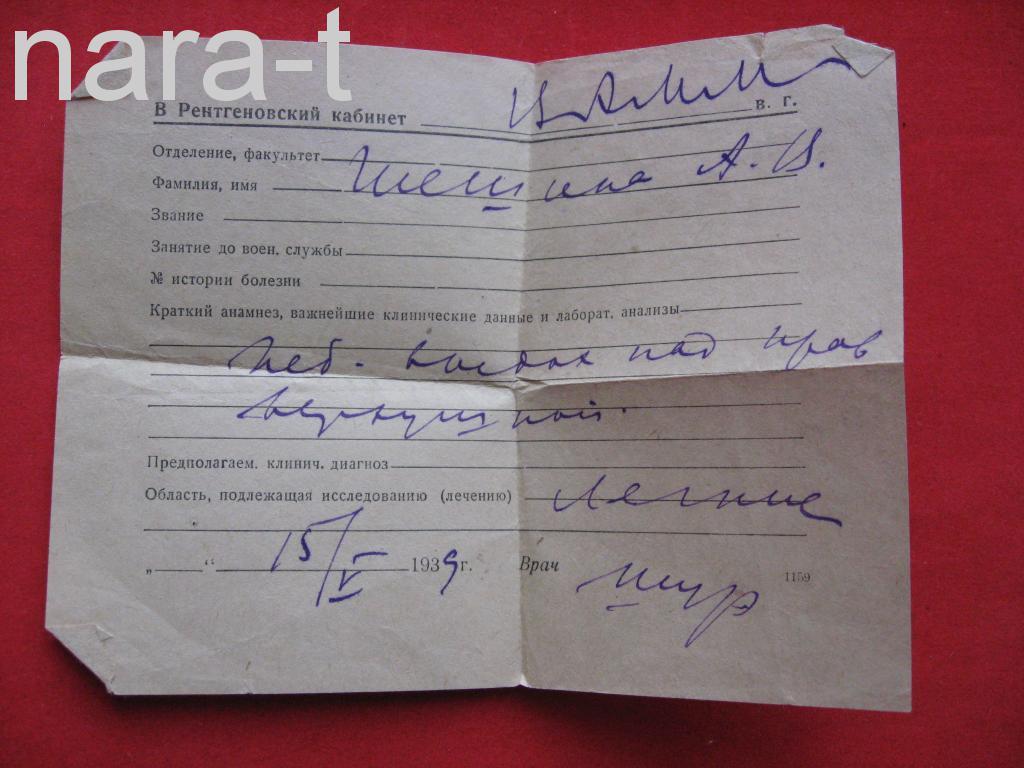 nara-t
В Рентгеновский кабинет в. г.
Отделение, факультет
Фамилия, имя Шешина А. В.
Звание
Занятие до воен. службы
№ истории болезни
Краткий анамнез, важнейшие клинические данные и лаборат. анализы
выдох над прав
верхушкой.
Предполагаем. клинич. диагноз
Область, подлежащая исследованию (лечению) Легкие
„ “ 15/V 1939 г. Врач
1159